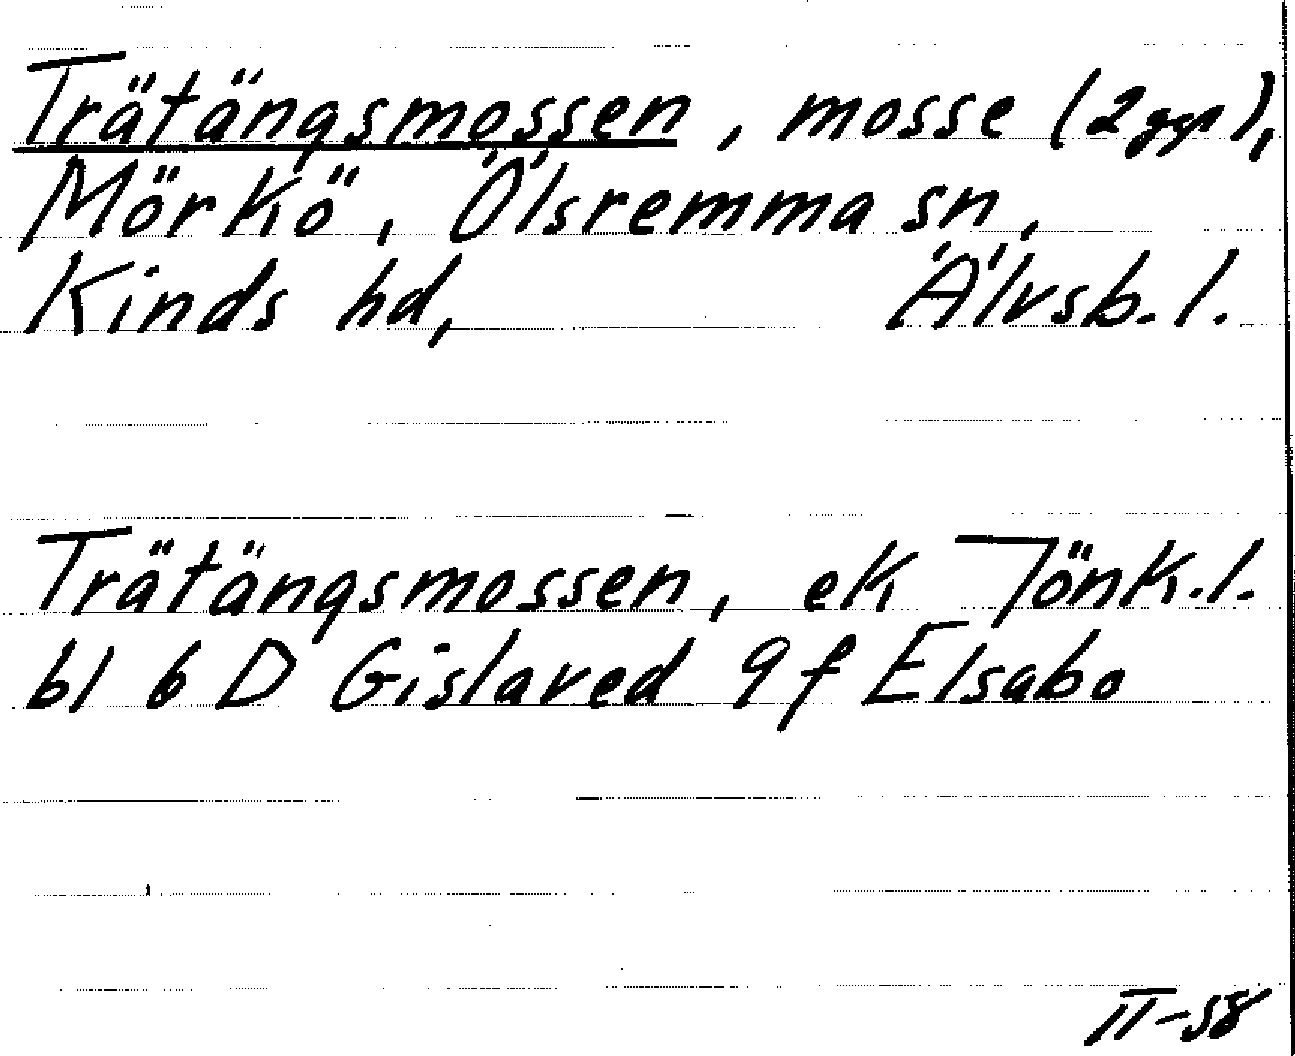 Trätängsmossen, mosse (2 ggr),
Mörkö, Ölsremma sn,
Kinds hd, Älvsb. l.
Trätängsmossen, ek Jönk. l.
bl 6 D Gislaved 9 f Elsabo
II-58